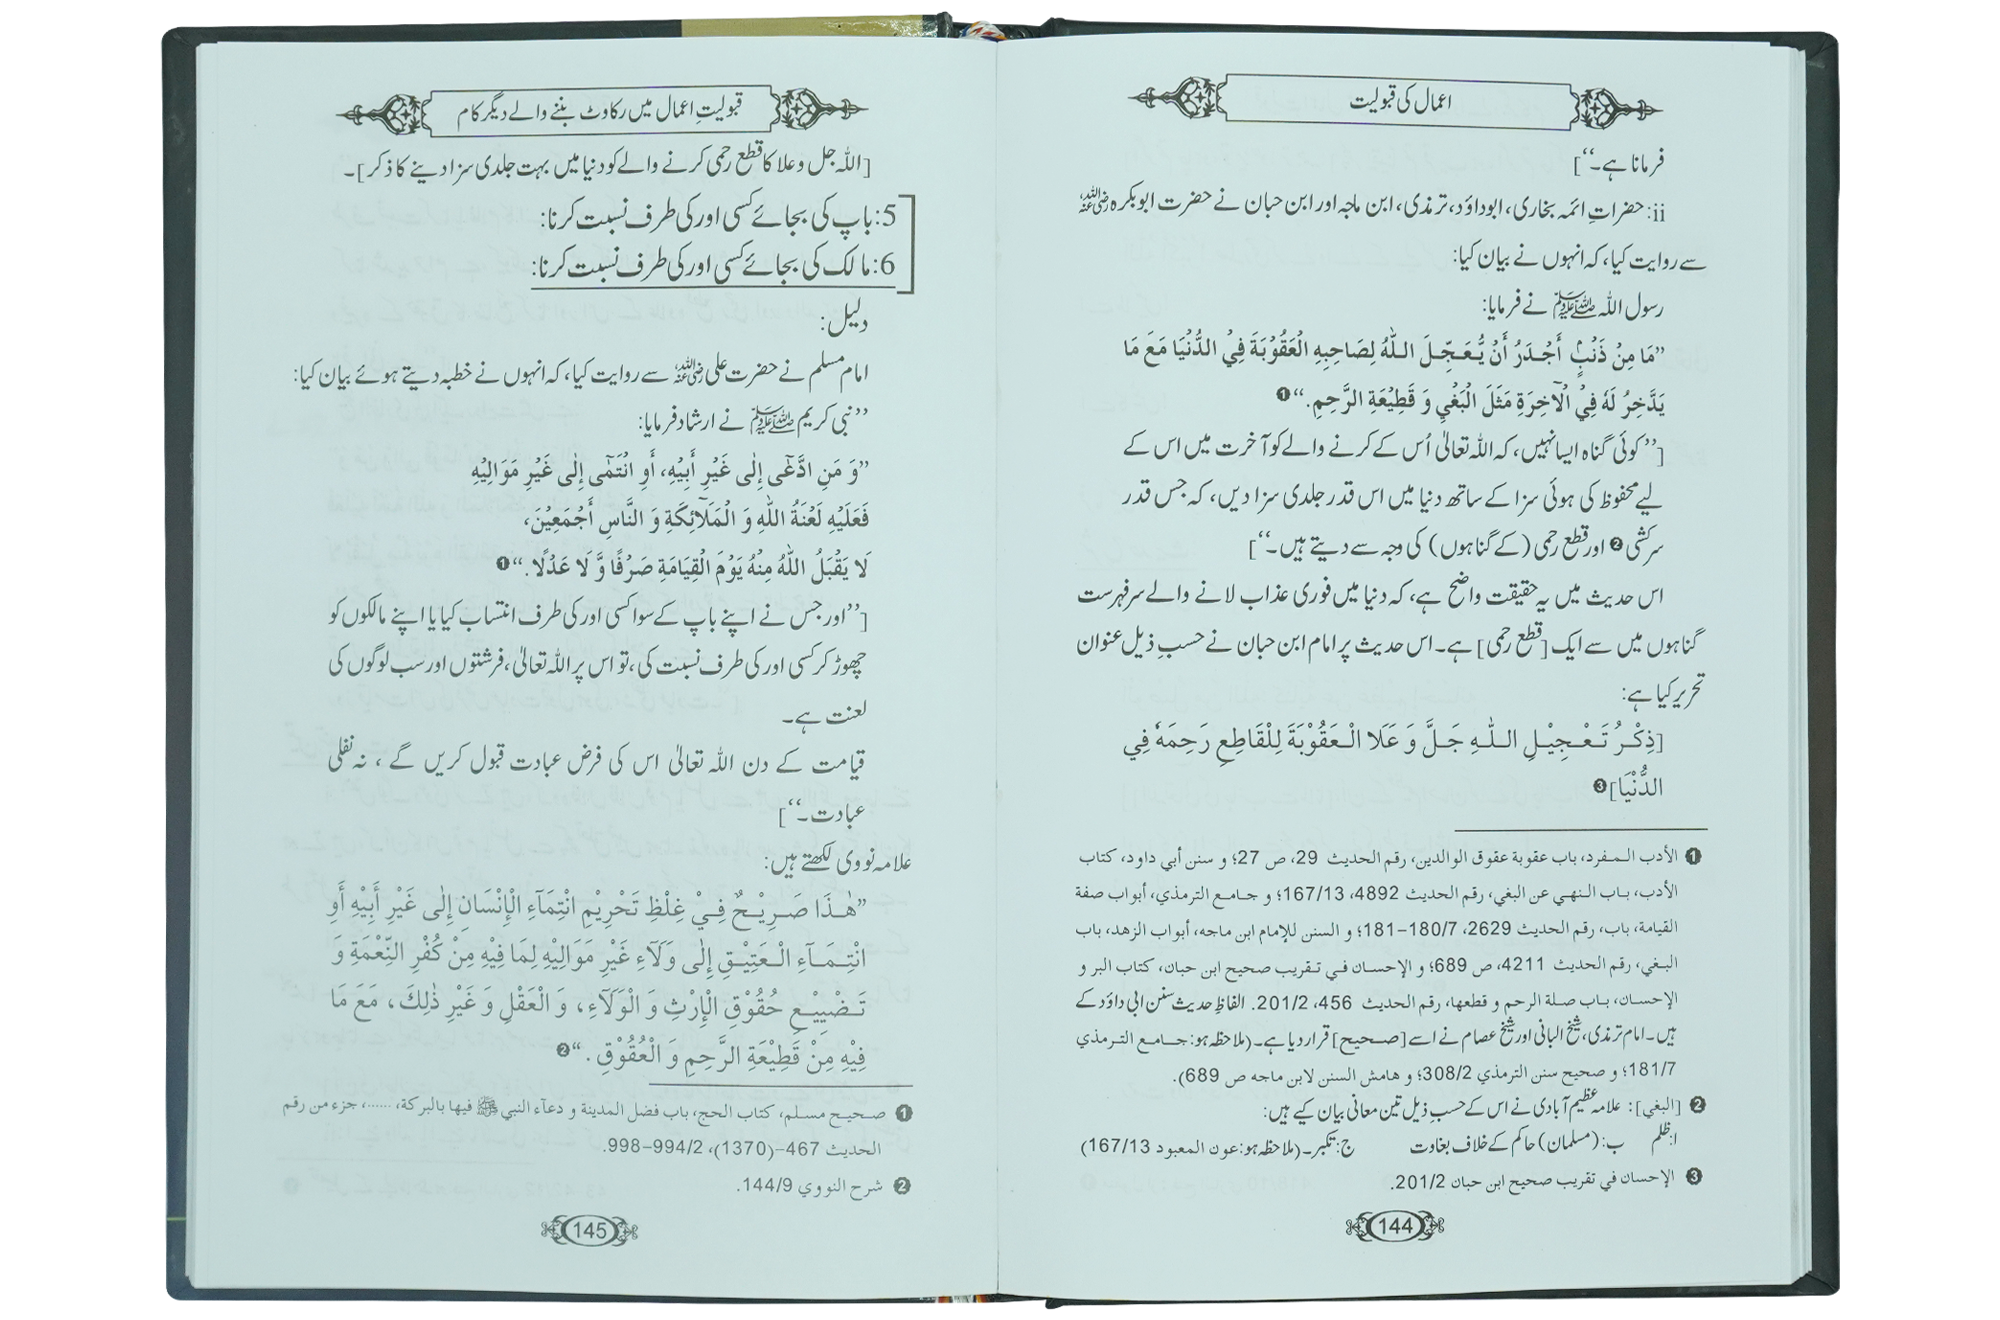 اعمال کی قبولیت
فرمانا ہے۔‘‘]
ii: حضراتِ ائمہ بخاری، ابوداؤد، ترمذی، ابن ماجہ اور ابن حبان نے حضرت ابوبکرہ رضی اللہ عنہ
سے روایت کیا، کہ انہوں نے بیان کیا:
رسول اللہ ﷺ نے فرمایا:
”مَا مِنْ ذَنْبٍ أَجْدَرُ أَنْ يُّعَجِّلَ اللّٰهُ لِصَاحِبِهِ الْعَقُوْبَةَ فِيْ الدُّنْيَا مَعَ مَا
يَدَّخِرُ لَهُ فِيْ الْآخِرَةِ مَثَلَ الْبَغْيِ وَ قَطِيْعَةِ الرَّحِمِ.“❶
[’’کوئی گناہ ایسا نہیں، کہ اللہ تعالیٰ اُس کے کرنے والے کو آخرت میں اس کے
لیے محفوظ کی ہوئی سزا کے ساتھ دنیا میں اس قدر جلدی سزا دیں، کہ جس قدر
سرکشی❷ اور قطع رحمی (کے گناہوں) کی وجہ سے دیتے ہیں۔‘‘]
اس حدیث میں یہ حقیقت واضح ہے، کہ دنیا میں فوری عذاب لانے والے سرفہرست
گناہوں میں سے ایک [قطع رحمی] ہے۔ اس حدیث پر امام ابن حبان نے حسبِ ذیل عنوان
تحریر کیا ہے:
[ذِكْرُ تَعْجِيْلِ اللّٰهِ جَلَّ وَ عَلَا الْعَقُوْبَةَ لِلْقَاطِعِ رَحِمَهُ فِي
الدُّنْيَا]❸
❶ الأدب المفرد، باب عقوبة عقوق الوالدين، رقم الحديث 29، ص 27؛ و سنن أبي داود، كتاب
الأدب، باب النهي عن البغي، رقم الحديث 4892، 167/13؛ و جامع الترمذي، أبواب صفة
القيامة، باب، رقم الحديث 2629، 180/7-181؛ و السنن للإمام ابن ماجه، أبواب الزهد، باب
البغي، رقم الحديث 4211، ص 689؛ و الإحسان في تقريب صحيح ابن حبان، كتاب البر و
الإحسان، باب صلة الرحم و قطعها، رقم الحديث 456، 201/2. الفاظِ حدیث سنن ابی داؤد کے
ہیں۔ امام ترمذی، شیخ البانی اور شیخ عصام نے اسے [صحیح] قرار دیا ہے۔ (ملاحظہ ہو: جامع الترمذي
181/7؛ و صحيح سنن الترمذي 308/2؛ و هامش السنن لابن ماجه ص 689).
❷ [البغي]: علامہ عظیم آبادی نے اس کے حسبِ ذیل تین معانی بیان کیے ہیں:
ا: ظلم ب: (مسلمان) حاکم کے خلاف بغاوت ج: تکبر۔ (ملاحظہ ہو: عون المعبود 167/13)
❸ الإحسان في تقريب صحيح ابن حبان 201/2.
144
قبولیتِ اعمال میں رکاوٹ بننے والے دیگر کام
[اللہ جل وعلا کا قطع رحمی کرنے والے کو دنیا میں بہت جلدی سزا دینے کا ذکر]۔
5: باپ کی بجائے کسی اور کی طرف نسبت کرنا:
6: مالک کی بجائے کسی اور کی طرف نسبت کرنا:
دلیل:
امام مسلم نے حضرت علی رضی اللہ عنہ سے روایت کیا، کہ انہوں نے خطبہ دیتے ہوئے بیان کیا:
’’نبی کریم ﷺ نے ارشاد فرمایا:
”وَ مَنِ ادَّعٰى إِلٰى غَيْرِ أَبِيْهِ، أَوِ انْتَمٰى إِلٰى غَيْرِ مَوَالِيْهِ
فَعَلَيْهِ لَعْنَةُ اللّٰهِ وَ الْمَلَآئِكَةِ وَ النَّاسِ أَجْمَعِيْنَ،
لَا يَقْبَلُ اللّٰهُ مِنْهُ يَوْمَ الْقِيَامَةِ صَرْفًا وَّ لَا عَدْلًا.“❶
[’’اور جس نے اپنے باپ کے سوا کسی اور کی طرف انتساب کیا یا اپنے مالکوں کو
چھوڑ کر کسی اور کی طرف نسبت کی، تو اس پر اللہ تعالیٰ، فرشتوں اور سب لوگوں کی
لعنت ہے۔
قیامت کے دن اللہ تعالیٰ اس کی فرض عبادت قبول کریں گے، نہ نفلی
عبادت۔‘‘]
علامہ نووی لکھتے ہیں:
”هٰذَا صَرِيْحٌ فِيْ غِلْظِ تَحْرِيْمِ انْتِمَآءِ الْإِنْسَانِ إِلٰى غَيْرِ أَبِيْهِ أَوِ
انْتِمَآءِ الْعَتِيْقِ إِلٰى وَلَآءِ غَيْرِ مَوَالِيْهِ لِمَا فِيْهِ مِنْ كُفْرِ النِّعْمَةِ وَ
تَضْيِيْعِ حُقُوْقِ الْإِرْثِ وَ الْوَلَآءِ، وَ الْعَقْلِ وَ غَيْرِ ذٰلِكَ، مَعَ مَا
فِيْهِ مِنْ قَطِيْعَةِ الرَّحِمِ وَ الْعُقُوْقِ.“❷
❶ صحيح مسلم، كتاب الحج، باب فضل المدينة و دعآء النبي ﷺ فيها بالبركة، ......، جزء من رقم
الحديث 467-(1370)، 994/2-998.
❷ شرح النووي 144/9.
145